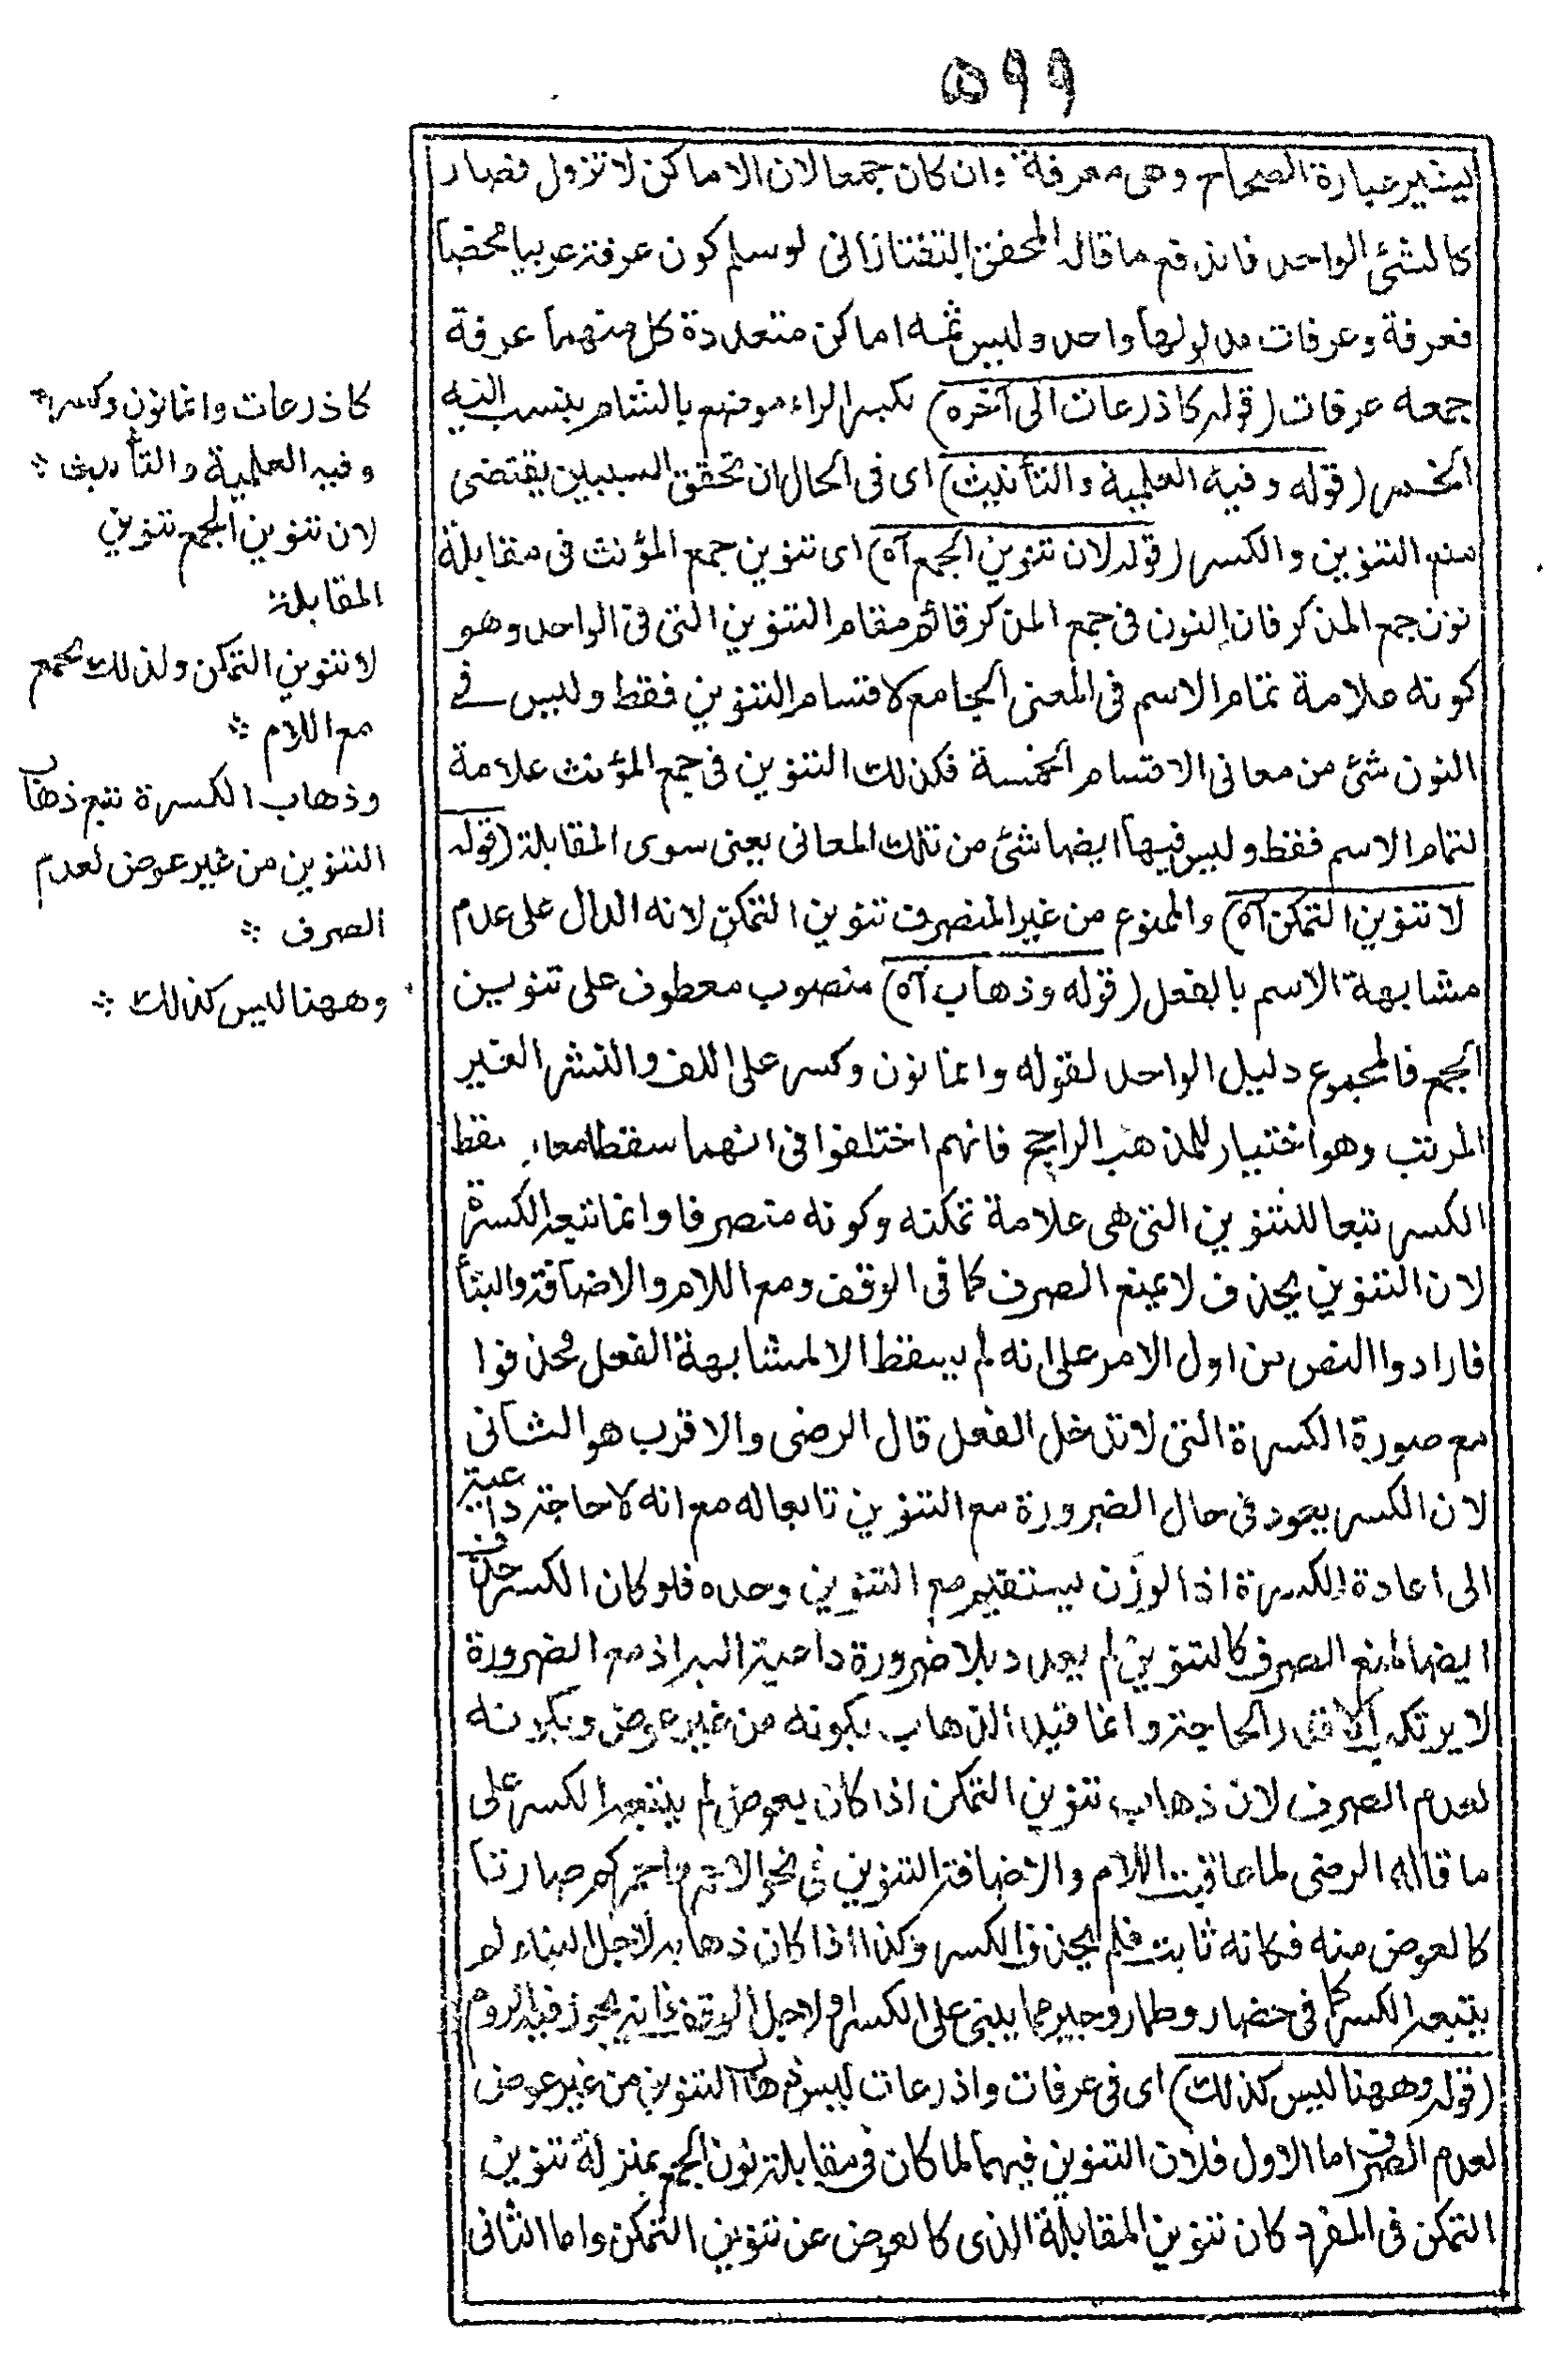 ٥٩٩
ليشير عبارة الصحاح وهى معرفة وان كان جمعا لان الاماكن لا تزول فصار
كالشئ الواحد فاندفع ما قاله المحقق التفتازانى لو سلم كون عرفة عربيا محضا
فعرفة وعرفات مدلولها واحد وليس ثمه اماكن متعددة كل منهما عرفة
جمعه عرفات (قوله كاذرعات الى آخره) بكسر الراء موضع بالشام ينسب اليه
الخمر (قوله وفيه العلمية والتأنيث) اى فى الحال ان تحقق السببين يقتضى
منع التنوين والكسر (قوله لان تنوين الجمع آه) اى تنوين جمع المؤنث فى مقابلة
نون جمع المذكر فان النون فى جمع المذكر قائم مقام التنوين التى فى الواحد وهو
كونه علامة تمام الاسم فى المعنى الجامع لاقسام التنوين فقط وليس فے
النون شئ من معانى الاقسام الخمسة فكذلك التنوين فى جمع المؤنث علامة
لتمام الاسم فقط وليس فيها ايضا شئ من تلك المعانى يعنى سوى المقابلة (قوله
لا تنوين التمكن آه) والممنوع من غير المنصرف تنوين التمكن لانه الدال على عدم
مشابهة الاسم بالفعل (قوله وذهاب آه) منصوب معطوف على تنوين
الجمع فالمجموع دليل الواحد لقوله وانما نون وكسر على اللف والنشر الغير
المرتب وهو اختيار للمذهب الراجح فانهم اختلفوا فى انهما سقطا معا
الكسر تبعا للتنوين التى هى علامة تمكنه وكونه متصرفا وانما تبعه الكسرة
لان التنوين يحذف لا بمنع الصرف كما فى الوقف ومع اللام والاضافة والبنأ
فارادوا النص من اول الامر على انه لم يسقط الا لمشابهة الفعل فحذفوا
مع صورة الكسرة التى لا تدخل الفعل قال الرضى والاقرب هو الثانى
لان الكسر يعود فى حال الضرورة مع التنوين تابعا له مع انه لا حاجة داعية
الى اعادة الكسرة اذ الوزن يستقيم مع التنوين وحده فلو كان الكسر حذف
ايضا لمنع الصرف كالتنوين لم يعد بلا ضرورة داعية اليه اذ مع الضرورة
لا يرتكب الا قدر الحاجة وانما قيد الذهاب بكونه من غير عوض وبكونه
لعدم الصرف لان ذهاب تنوين التمكن اذا كان بعوض لم يتبعه الكسر على
ما قاله الرضى لما عاقبت اللام والاضافة التنوين فى نحو الاحمر واحمركم صارتا
كالعوض منه فكانه ثابت فلم يحذف الكسر وكذا اذا كان ذهابه لاجل البناء لم
يتبعه الكسر كما فى حضار وطمار وجير مما يبنى على الكسر او لاجل الوقف فانه يجوز فيه الروم
(قوله وههنا ليس كذلك) اى فى عرفات واذرعات ليس ذهاب التنوين من غير عوض
لعدم الصرف اما الاول فلان التنوين فيهما لما كان فى مقابلة نون الجمع بمنزلة تنوين
التمكن فى المفرد كان تنوين المقابلة الذى كالعوض عن تنوين التمكن واما الثانى
كاذرعات وانما نون وكسر
وفيه العلمية والتأنيث ؞
لان تنوين الجمع تنوين
المقابلة
لا تنوين التمكن ولذلك يجمع
مع اللام ؞
وذهاب الكسرة تبع ذهاب
التنوين من غير عوض لعدم
الصرف ؞
وههنا ليس كذلك ؞